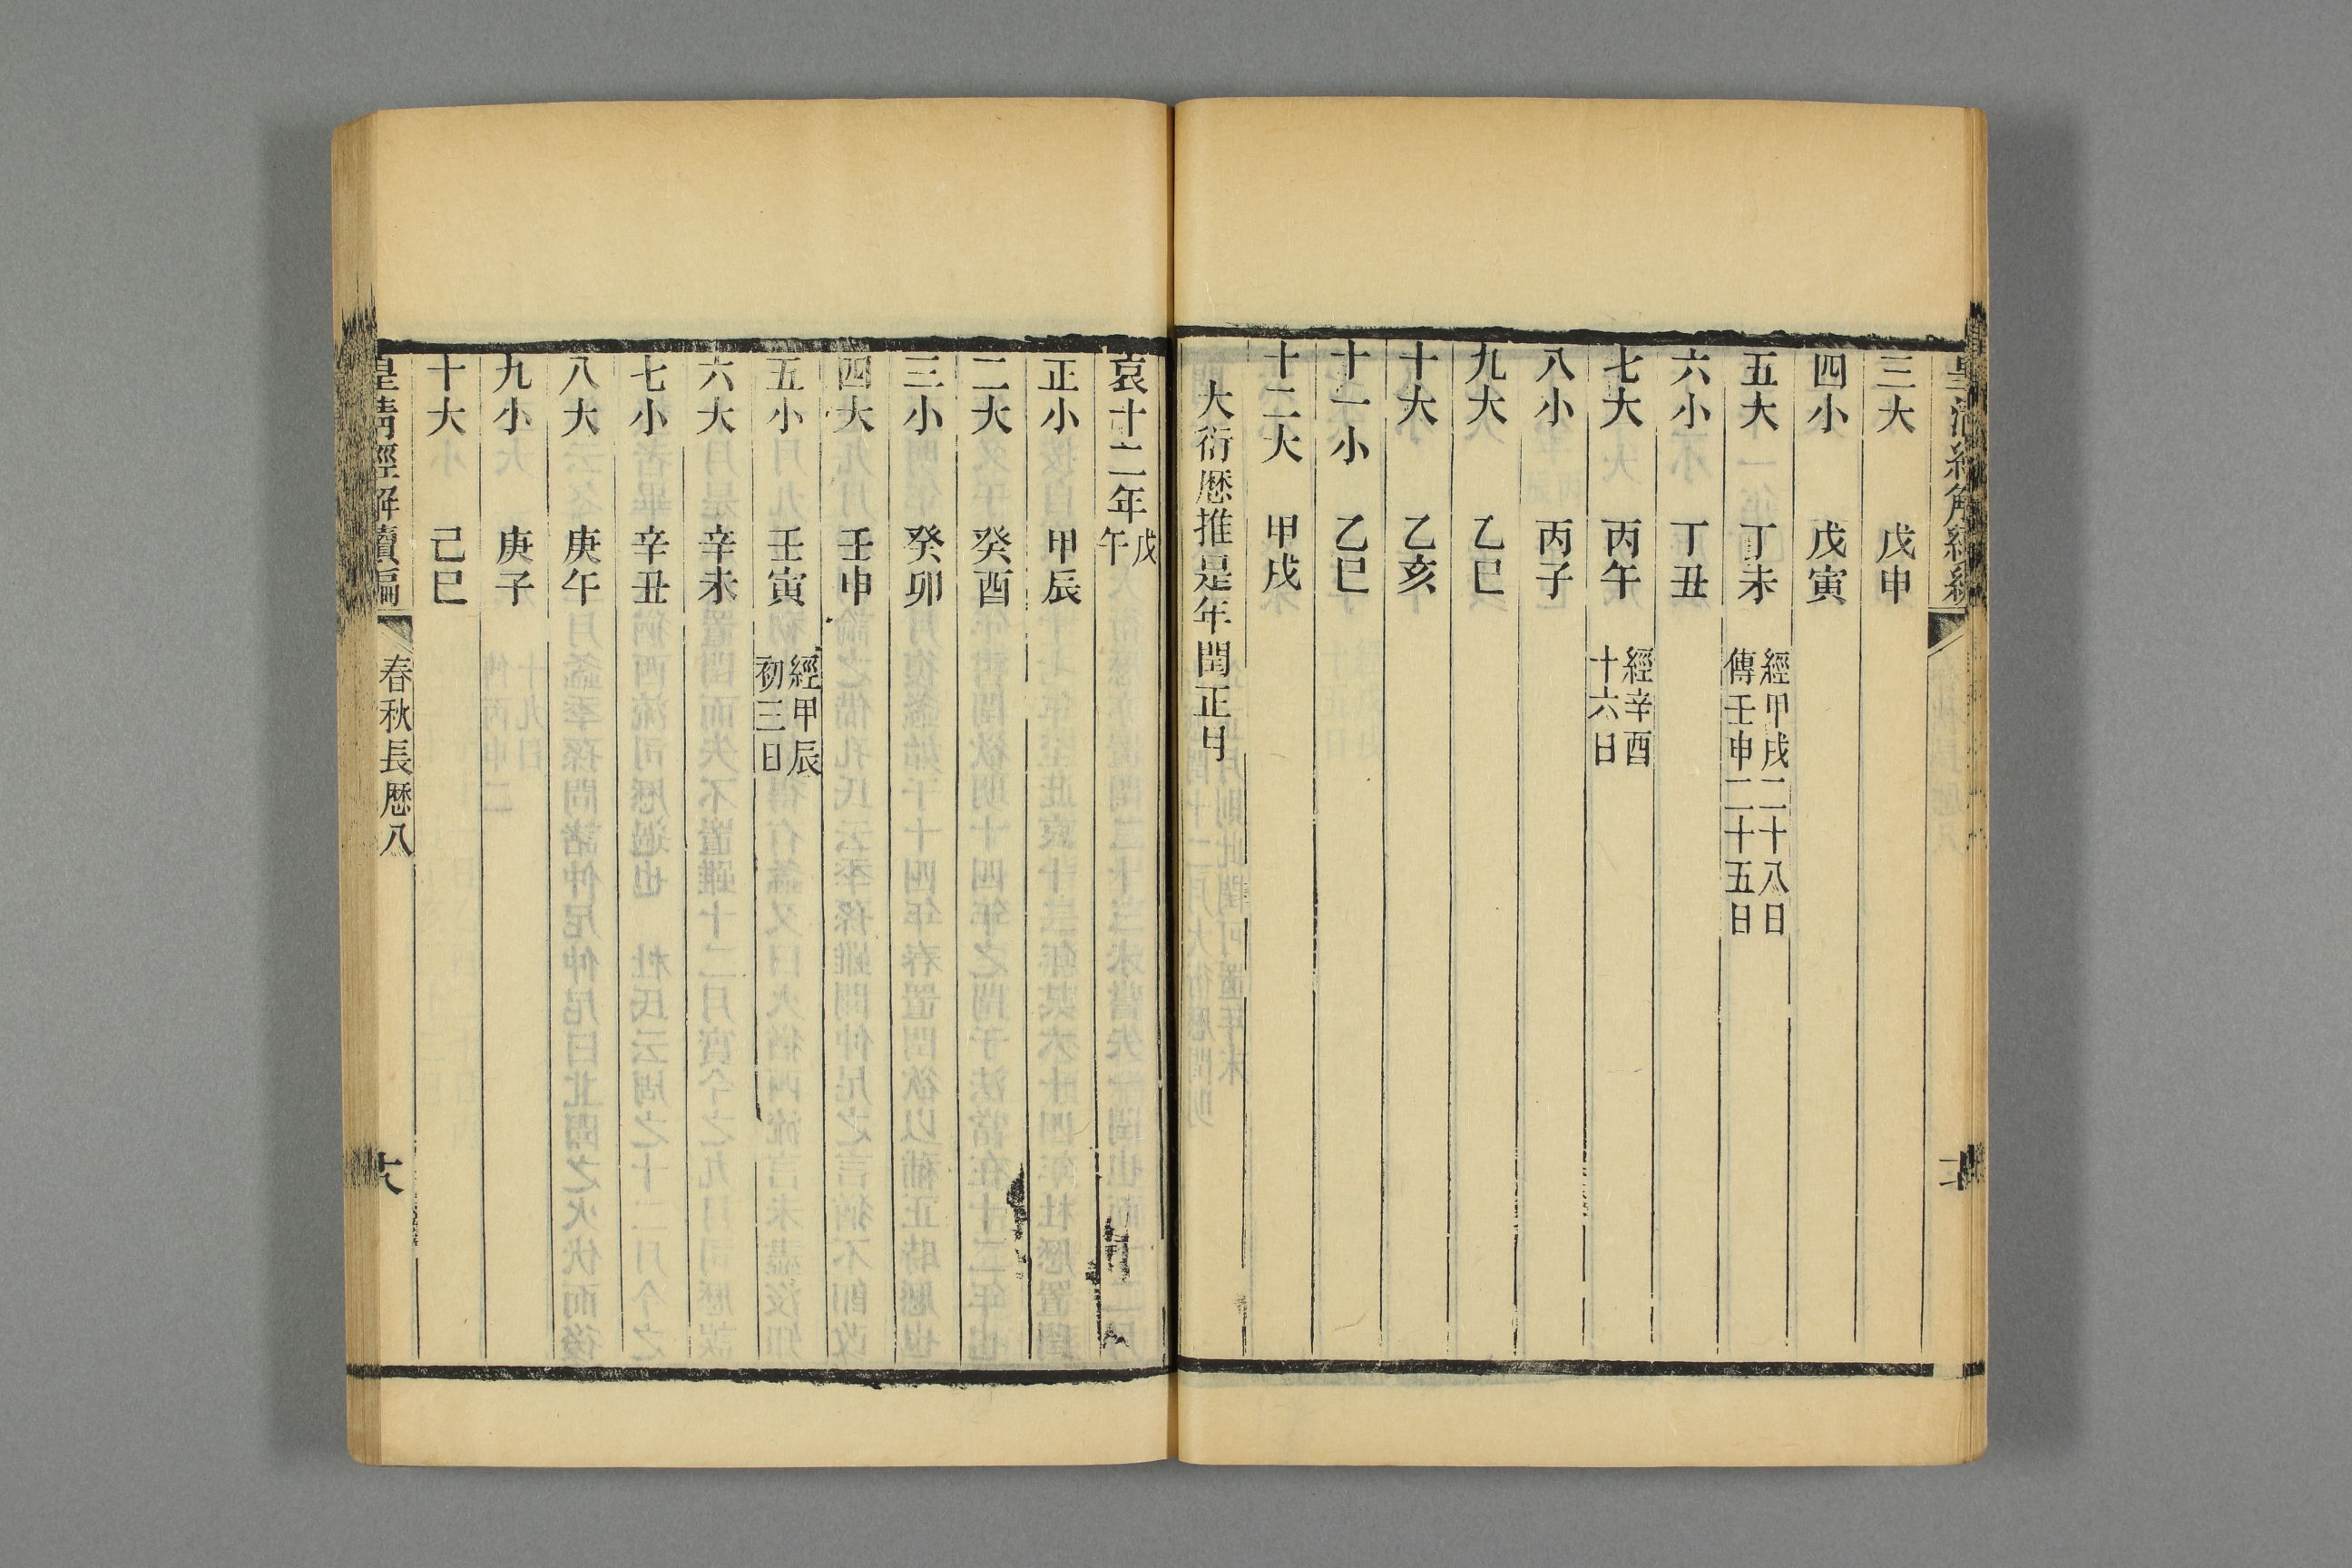 三大　戊申
四小　戊寅
五大　丁未　經甲戌二十八日
傳壬申二十五日
六小　丁丑
七大　丙午　經辛酉
十六日
八小　丙子
九大　乙巳
十大　乙亥
十一小　乙巳
十二大　甲戌
大衍厯推是年閏正月
哀十二年戊
午
正小　甲辰
二大　癸酉
三小　癸卯
四大　壬申
五小　壬寅　經甲辰
初三日
六大　辛未
七小　辛丑
八大　庚午
九小　庚子
十大　己巳
皇清經解續編　春秋長厯八